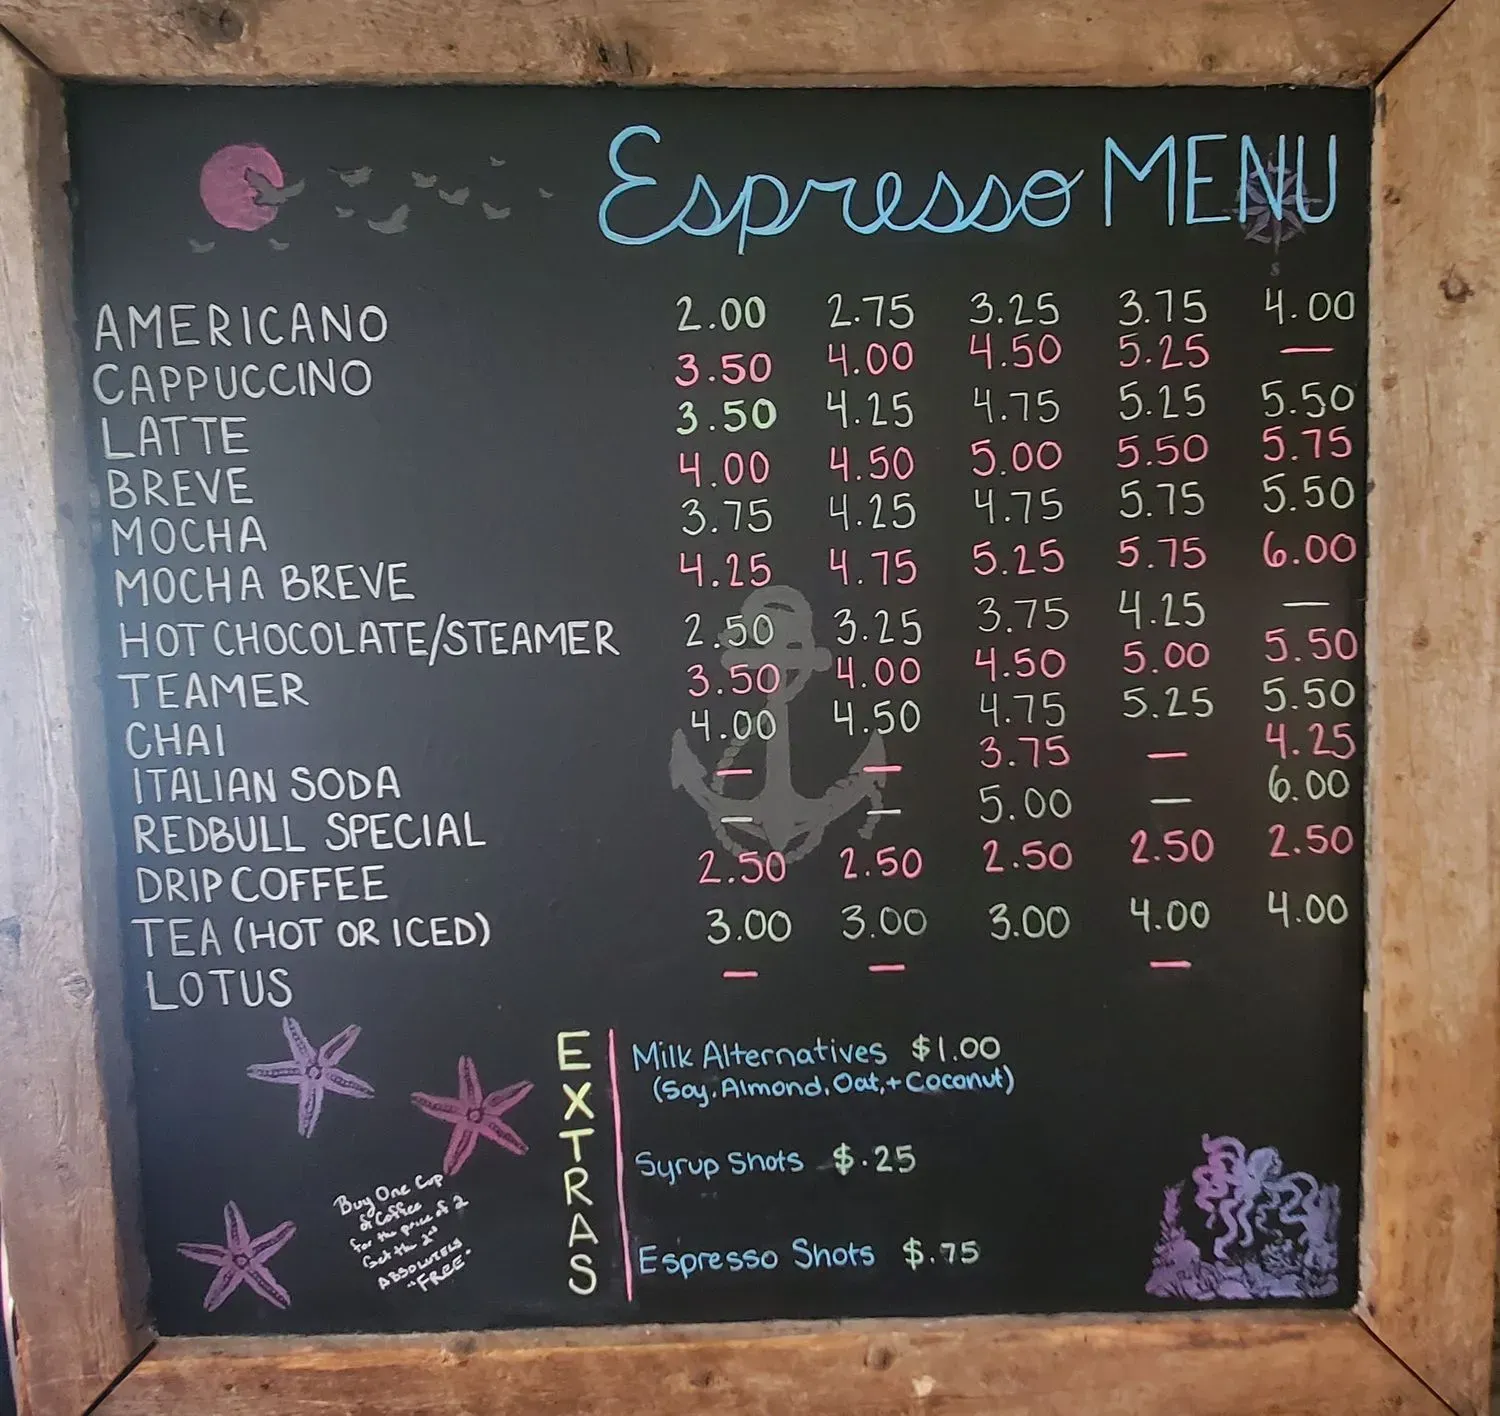 Espresso MENU
S
AMERICANO 2.00 2.75 3.25 3.75 4.00
CAPPUCCINO 3.50 4.00 4.50 5.25 —
LATTE 3.50 4.25 4.75 5.25 5.50
BREVE 4.00 4.50 5.00 5.50 5.75
MOCHA 3.75 4.25 4.75 5.75 5.50
MOCHA BREVE 4.25 4.75 5.25 5.75 6.00
HOT CHOCOLATE/STEAMER 2.50 3.25 3.75 4.25 —
TEAMER 3.50 4.00 4.50 5.00 5.50
CHAI 4.00 4.50 4.75 5.25 5.50
ITALIAN SODA — — 3.75 — 4.25
REDBULL SPECIAL — — 5.00 — 6.00
DRIP COFFEE 2.50 2.50 2.50 2.50 2.50
TEA (HOT OR ICED) 3.00 3.00 3.00 4.00 4.00
LOTUS — — —
EXTRAS
Milk Alternatives $1.00
(Soy, Almond, Oat, + Coconut)
Syrup Shots $.25
Espresso Shots $.75
Buy One Cup
of Coffee
for the price of 2
Get the 2nd
ABSOLUTELY
"FREE"